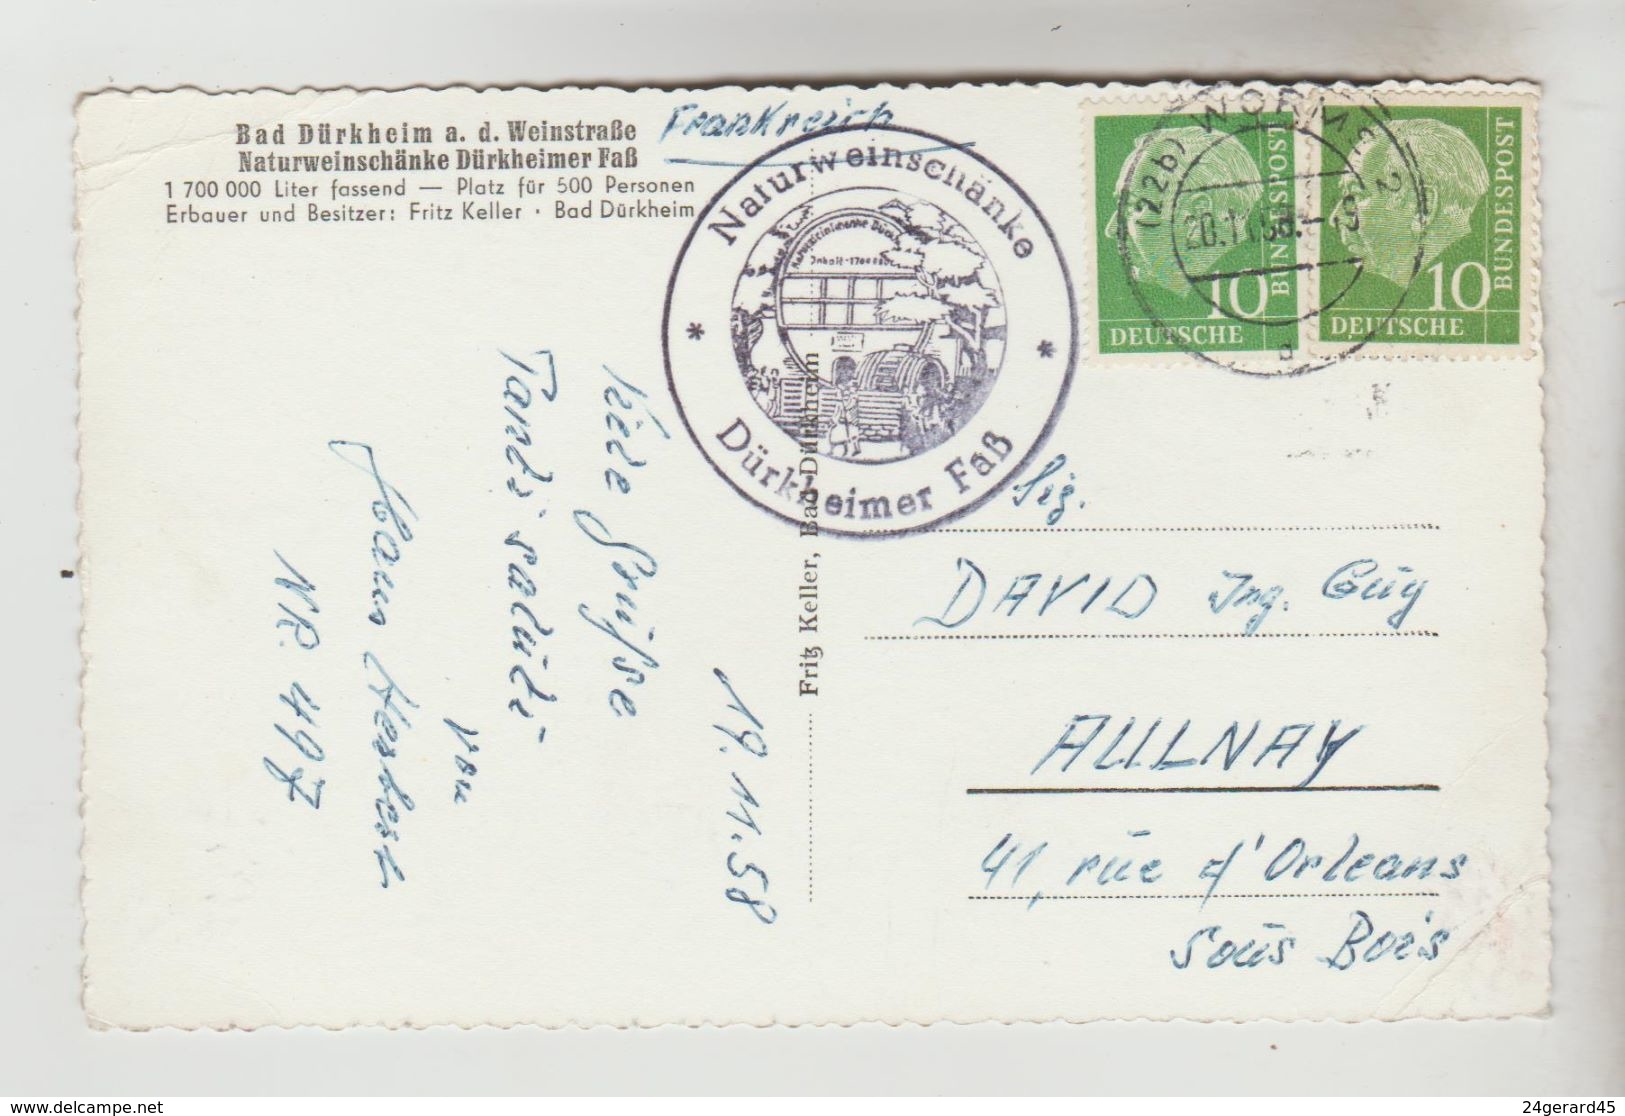 Bad Dürkheim a. d. Weinstraße
Naturweinschänke Dürkheimer Faß
1 700 000 Liter fassend — Platz für 500 Personen
Erbauer und Besitzer: Fritz Keller · Bad Dürkheim
Frankreich
Naturweinschänke
* *
Dürkheimer Faß
Inhalt-1700000
WORMS 2
(22b)
20.11.58.-19
a
10
DEUTSCHE
BUNDESPOST
10
DEUTSCHE
BUNDESPOST
19.11.58
Viele Grüsse
Tanti saluti
von
Hans Herbert
NR. 497
Fritz Keller, Bad Dürkheim
Sig.
DAVID Ing. Guy
AULNAY
41, rue d'Orleans
sous Bois
www.delcampe.net
24gerard45